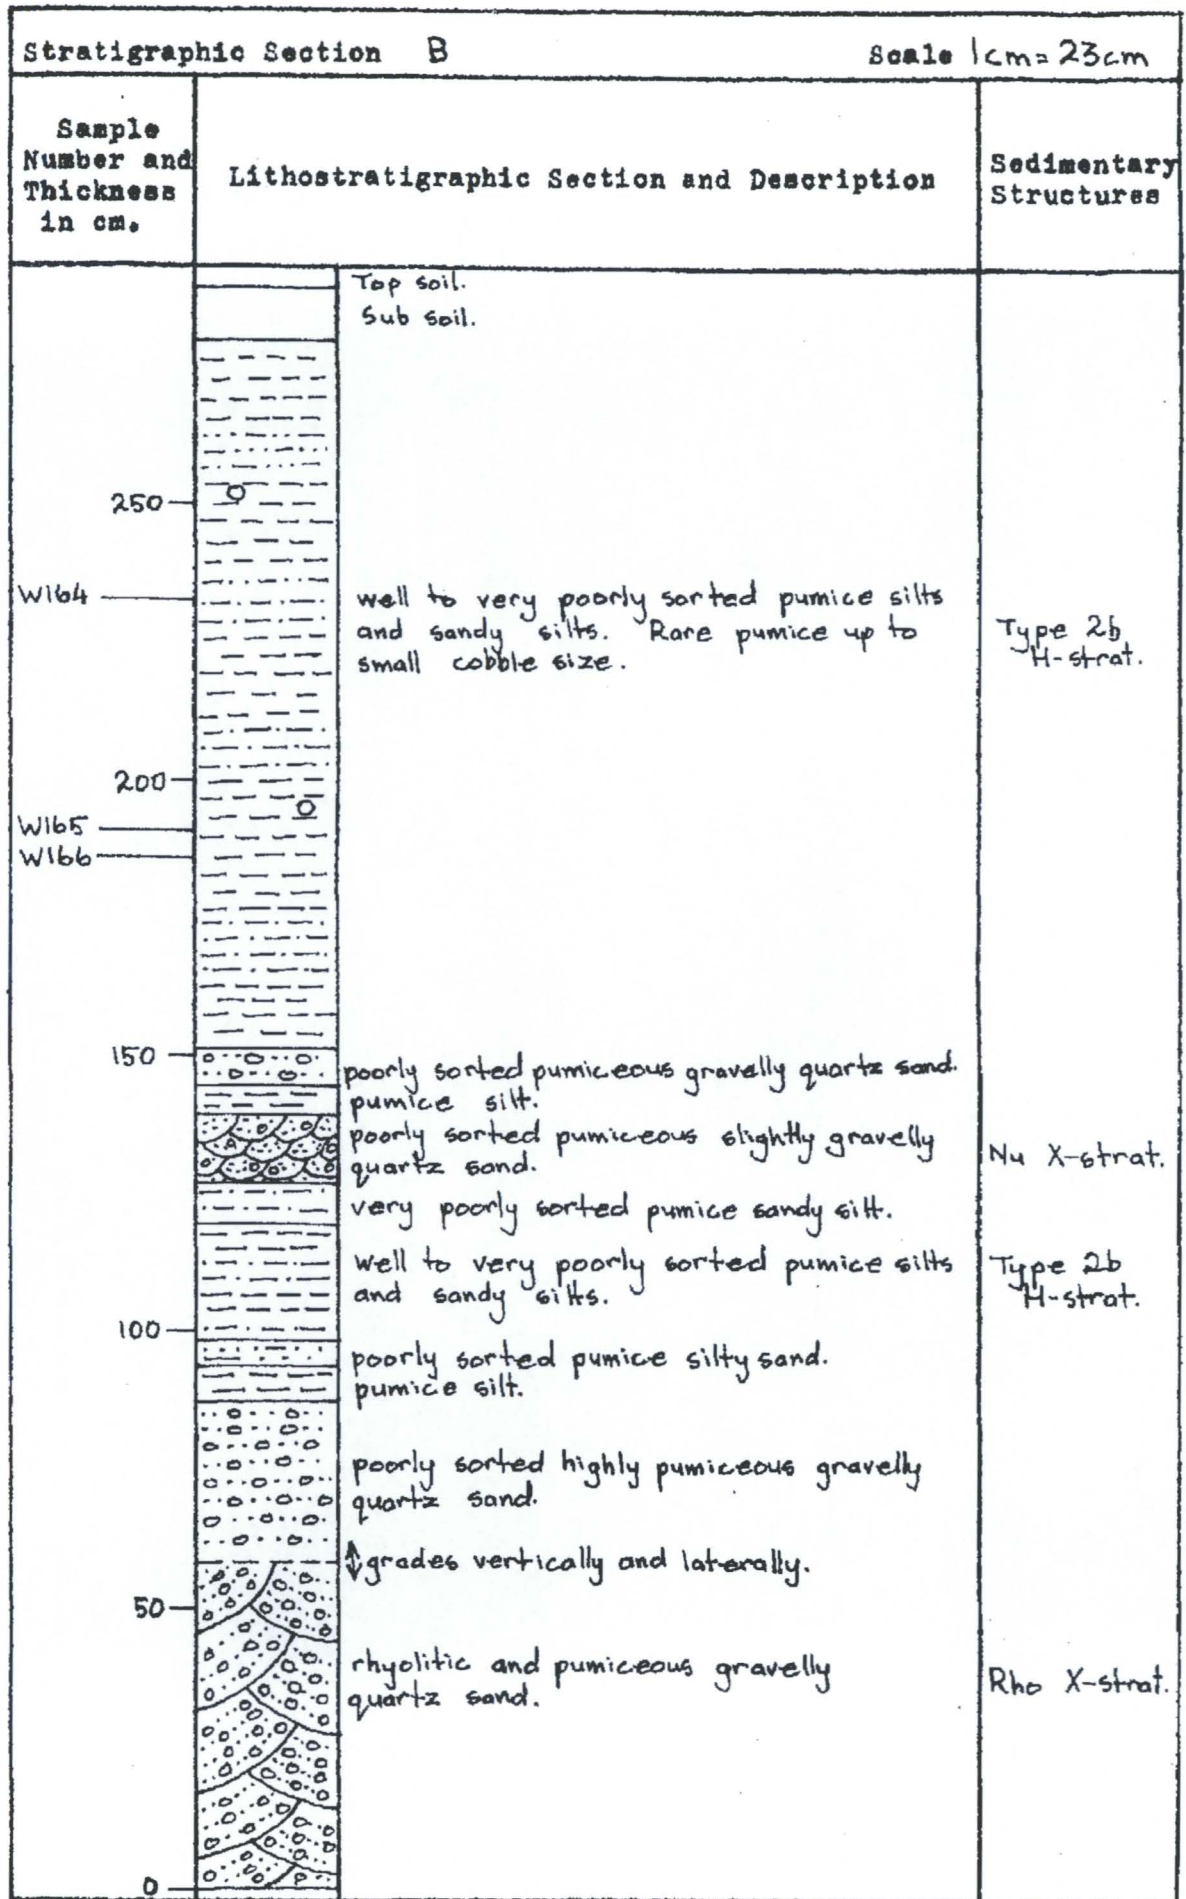 Stratigraphic Section B
Scale 1cm = 23cm
Sample
Number and
Thickness
in cm.
Lithostratigraphic Section and Description
Sedimentary
Structures
Top soil.
Sub soil.
250
W164
well to very poorly sorted pumice silts
and sandy silts. Rare pumice up to
small cobble size.
Type 2b
H-strat.
200
W165
W166
150
poorly sorted pumiceous gravelly quartz sand.
pumice silt.
poorly sorted pumiceous slightly gravelly
quartz sand.
Nu X-strat.
very poorly sorted pumice sandy silt.
Well to very poorly sorted pumice silts
and sandy silts.
Type 2b
H-strat.
100
poorly sorted pumice silty sand.
pumice silt.
poorly sorted highly pumiceous gravelly
quartz sand.
grades vertically and laterally.
50
rhyolitic and pumiceous gravelly
quartz sand.
Rho X-strat.
0